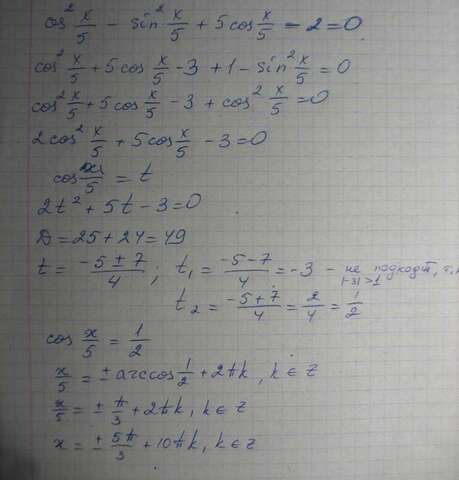 cos² x/5 - sin² x/5 + 5cos x/5 - 2 = 0
cos² x/5 + 5cos x/5 - 3 + 1 - sin² x/5 = 0
cos² x/5 + 5cos x/5 - 3 + cos² x/5 = 0
2cos² x/5 + 5cos x/5 - 3 = 0
cos x/5 = t
2t² + 5t - 3 = 0
D = 25 + 24 = 49
t = (-5 ± 7)/4 ; t₁ = (-5-7)/4 = -3 - не подходит, т.к |-3| > 1
t₂ = (-5+7)/4 = 2/4 = 1/2
cos x/5 = 1/2
x/5 = ± arccos 1/2 + 2πk, k ∈ z
x/5 = ± π/3 + 2πk, k ∈ z
x = ± 5π/3 + 10πk, k ∈ z